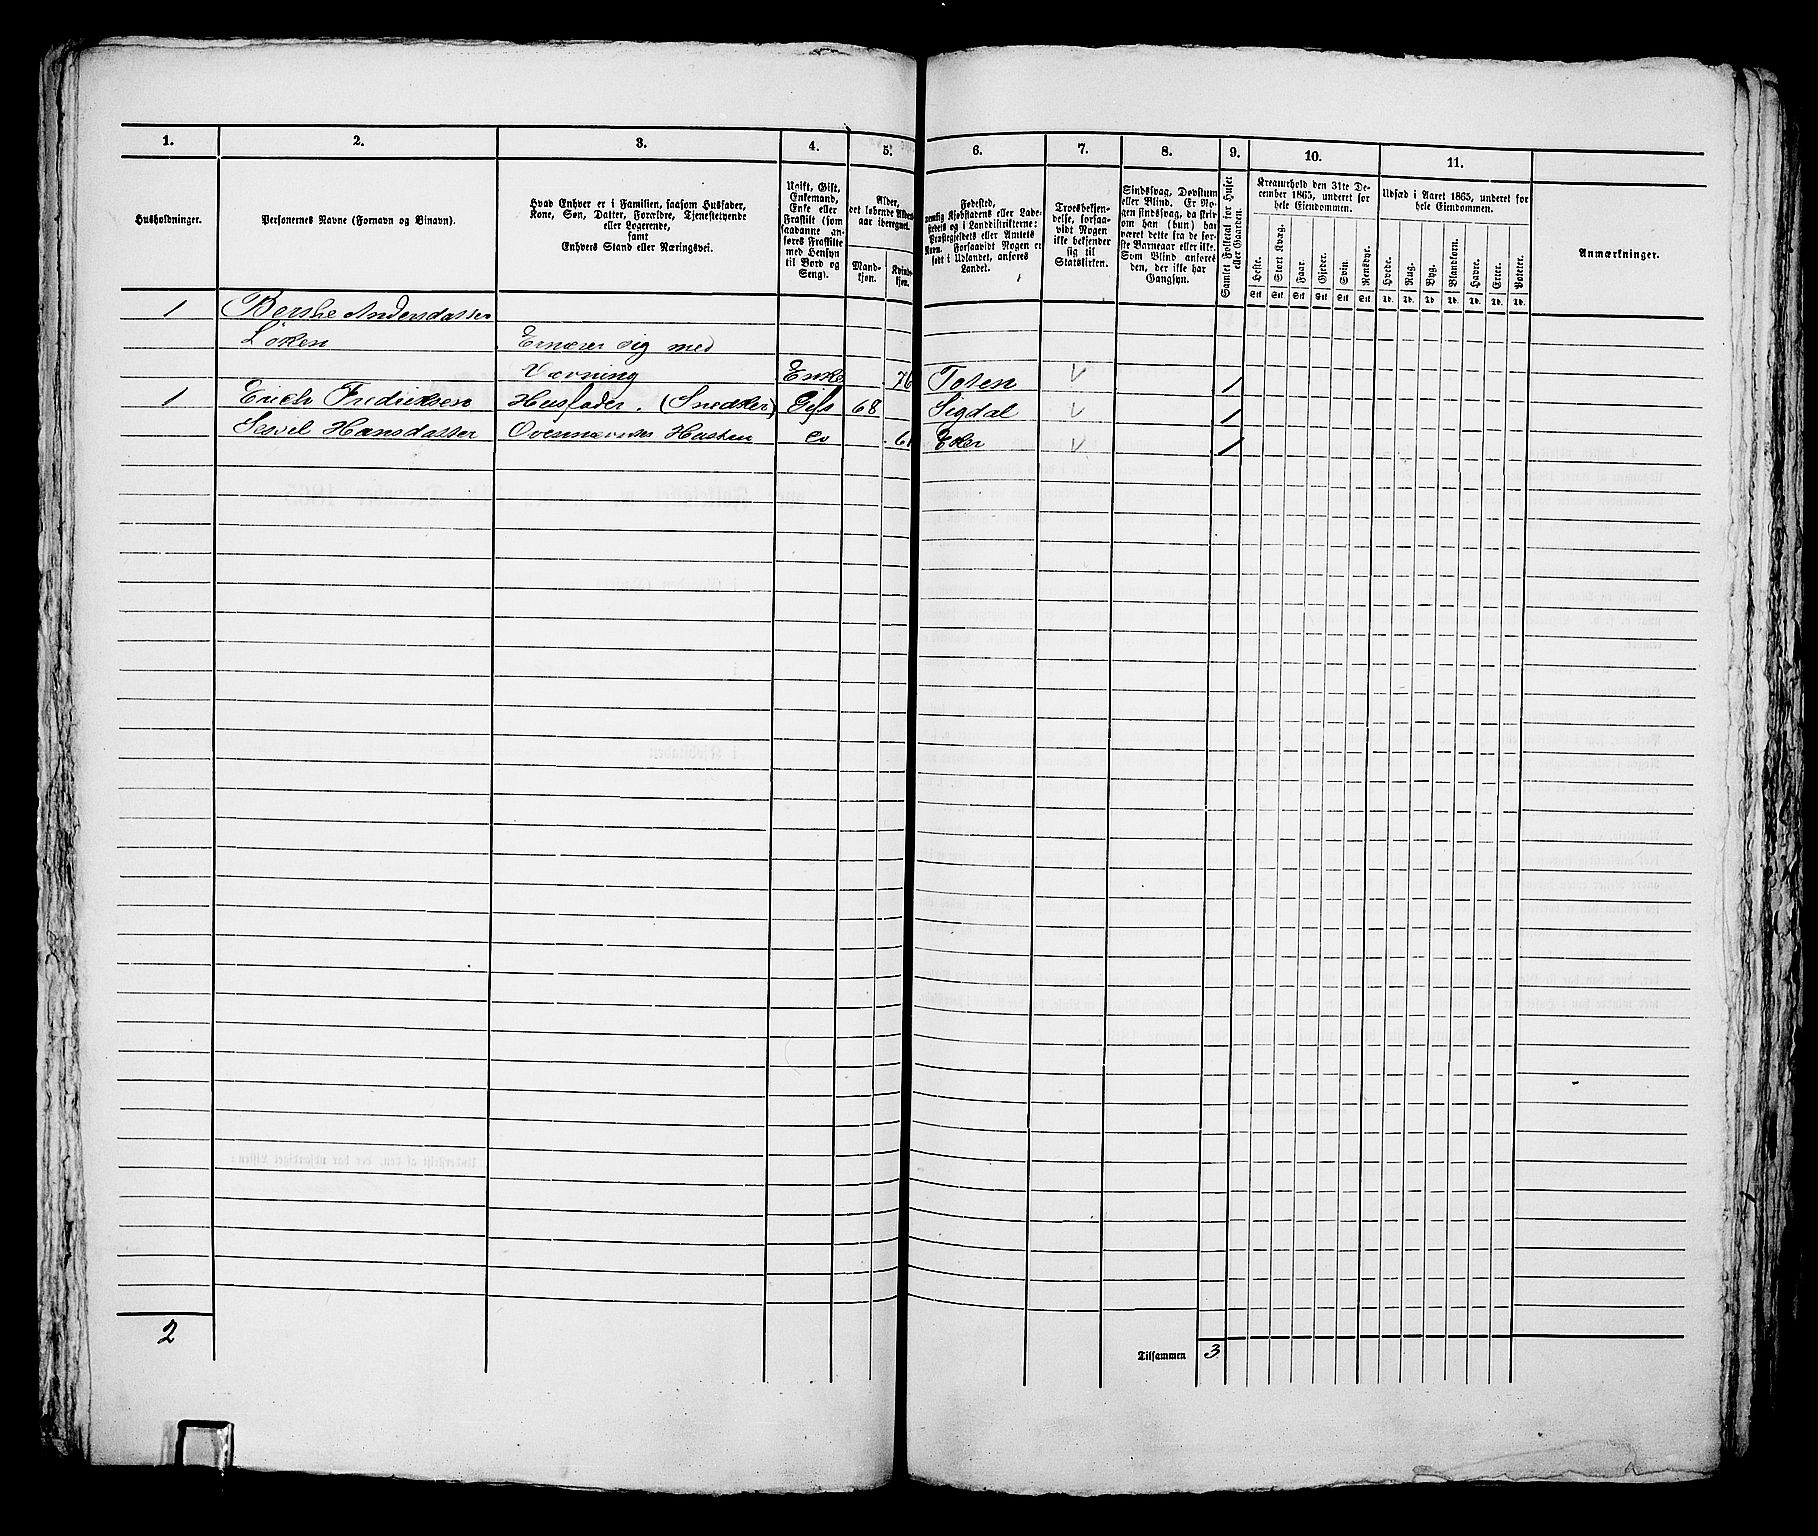 1. 2. 3. 4. 5. 6. 7. 8. 9. 10. 11.
Husholdninger.
Personernes Navne (Fornavn og Binavn).
Hvad Enhver er i Familien, saasom Husfader,
Kone, Søn, Datter, Forældre, Tjenestetyende
eller Logerende,
samt
Enhvers Stand eller Næringsvei.
Ugift, Gift,
Enkemand,
Enke eller
Fraskilt (som
saadanne an-
føres Fraskilte
med Hensyn
til Bord og
Seng).
Alder,
det løbende Alders-
aar iberegnet.
Mand-
kjøn.
Kvinde-
kjøn.
Fødested,
nemlig Kjøbstadens eller Lade-
stedets og i Landdistrikterne:
Præstegjeldets eller Amtets
Navn. Forsaavidt Nogen er
født i Udlandet, anføres
Landet.
Troesbekjen-
delse, forsaa-
vidt Nogen
ikke bekjender
sig til
Statskirken.
Sindssvag, Døvstum
eller Blind. Er No-
gen sindssvag, da skri-
ves om han (hun) har
været dette fra de før-
ste Barneaar eller ikke.
Som Blind anføres
den, der ikke har
Gangsyn.
Samlet Folketal for Huset
eller Gaarden.
Kreaturhold den 31te De-
cember 1865, underet for
hele Eiendommen.
Heste. Stort Kvæg. Faar. Gjeder. Svin. Rensdyr.
Stk Stk Stk Stk Stk Stk
Udsæd i Aaret 1865, underet for
hele Eiendommen.
Hvede. Rug. Byg. Blandkorn. Havre. Erter. Poteter.
Td. Td. Td. Td. Td. Td. Td.
Anmærkninger.
1 Berthe Andersdatter
Løken Ernærer sig med
Vævning Enke 76 Toten 1
1 Erich Fredriksen Husfader. (Snedker) Gift 68 Sigdal 1
Sessel Hansdatter 61 Eker 1
2
Tilsammen 3